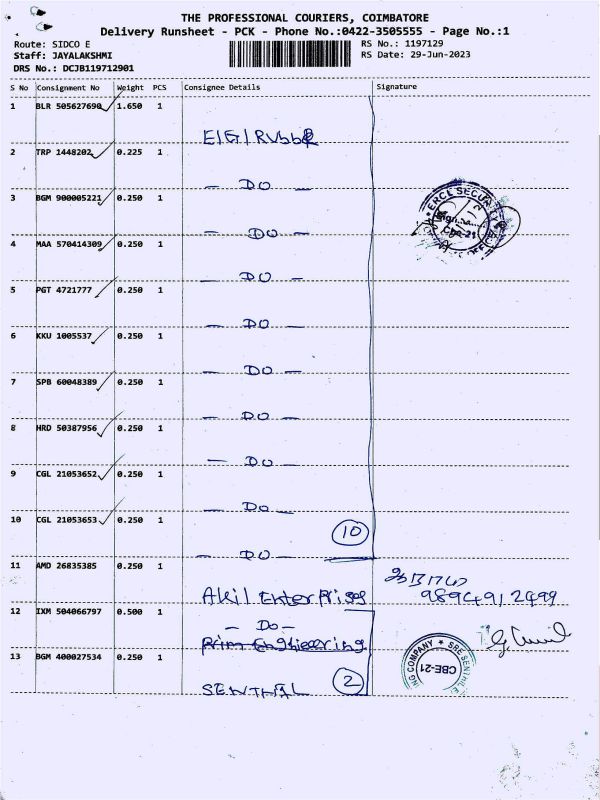 THE PROFESSIONAL COURIERS, COIMBATORE
Delivery Runsheet - PCK - Phone No.:0422-3505555 - Page No.:1
Route: SIDCO E
RS No.: 1197129
Staff: JAYALAKSHMI
RS Date: 29-Jun-2023
DRS No.: DCJB119712901
S No Consignment No Weight PCS Consignee Details Signature
1 BLR 505627690 1.650 1
EIGI Rubber
2 TRP 1448202 0.225 1
- DO -
3 BGM 900005221 0.250 1
- DO -
4 MAA 570414309 0.250 1
- DO -
5 PGT 4721777 0.250 1
- DO -
6 KKU 1005537 0.250 1
- DO -
7 SPB 60048389 0.250 1
- DO -
8 HRD 50387956 0.250 1
- DO -
9 CGL 21053652 0.250 1
- DO -
10 CGL 21053653 0.250 1
10
- DO -
11 AMD 26835385 0.250 1
Akil Enterprises
9894912499
12 IXM 504066797 0.500 1
- Do -
13 BGM 400027534 0.250 1
SENTHIL
2
SECURITY
CBE-21
ING COMPANY * SRE SENTHIL
CBE-21